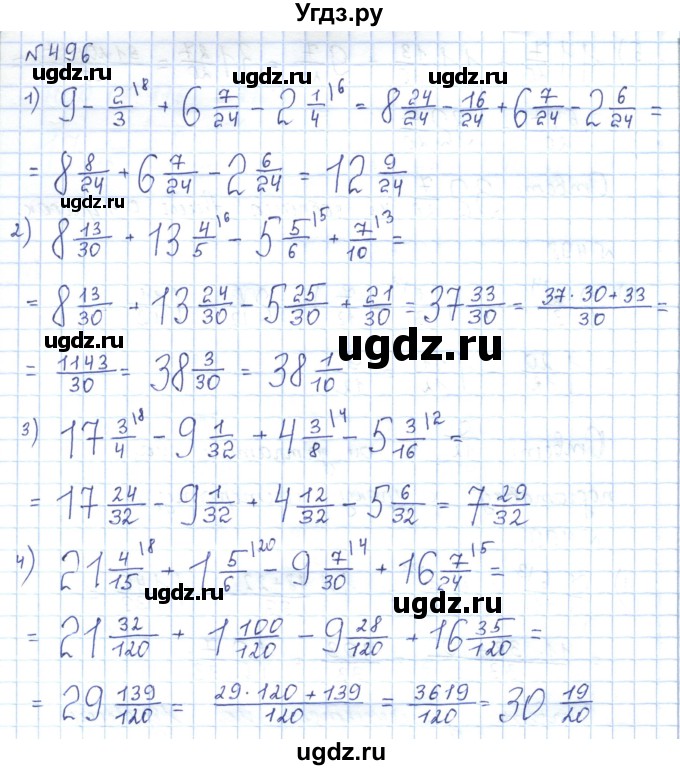 Угдз.ру
№496
ugdz.ru ugdz.ru
1) 9 - 2/3 |8 + 6 7/24 - 2 1/4 |6 = 8 24/24 - 16/24 + 6 7/24 - 2 6/24 =
= 8 8/24 + 6 7/24 - 2 6/24 = 12 9/24
ugdz.ru
2) 8 13/30 + 13 4/5 |6 - 5 5/6 |5 + 7/10 |3 =
= 8 13/30 + 13 24/30 - 5 25/30 + 21/30 = 37 33/30 = 37·30+33/30 =
ugdz.ru
= 1143/30 = 38 3/30 = 38 1/10
3) 17 3/4 |8 - 9 1/32 + 4 3/8 |4 - 5 3/16 |2 =
ugdz.ru
= 17 24/32 - 9 1/32 + 4 12/32 - 5 6/32 = 7 29/32
4) 21 4/15 |8 + 1 5/6 |20 - 9 7/30 |4 + 16 7/24 |5 =
ugdz.ru ugdz.ru
= 21 32/120 + 1 100/120 - 9 28/120 + 16 35/120 =
= 29 139/120 = 29·120+139/120 = 3619/120 = 30 19/20
ugdz.ru
ugdz.ru